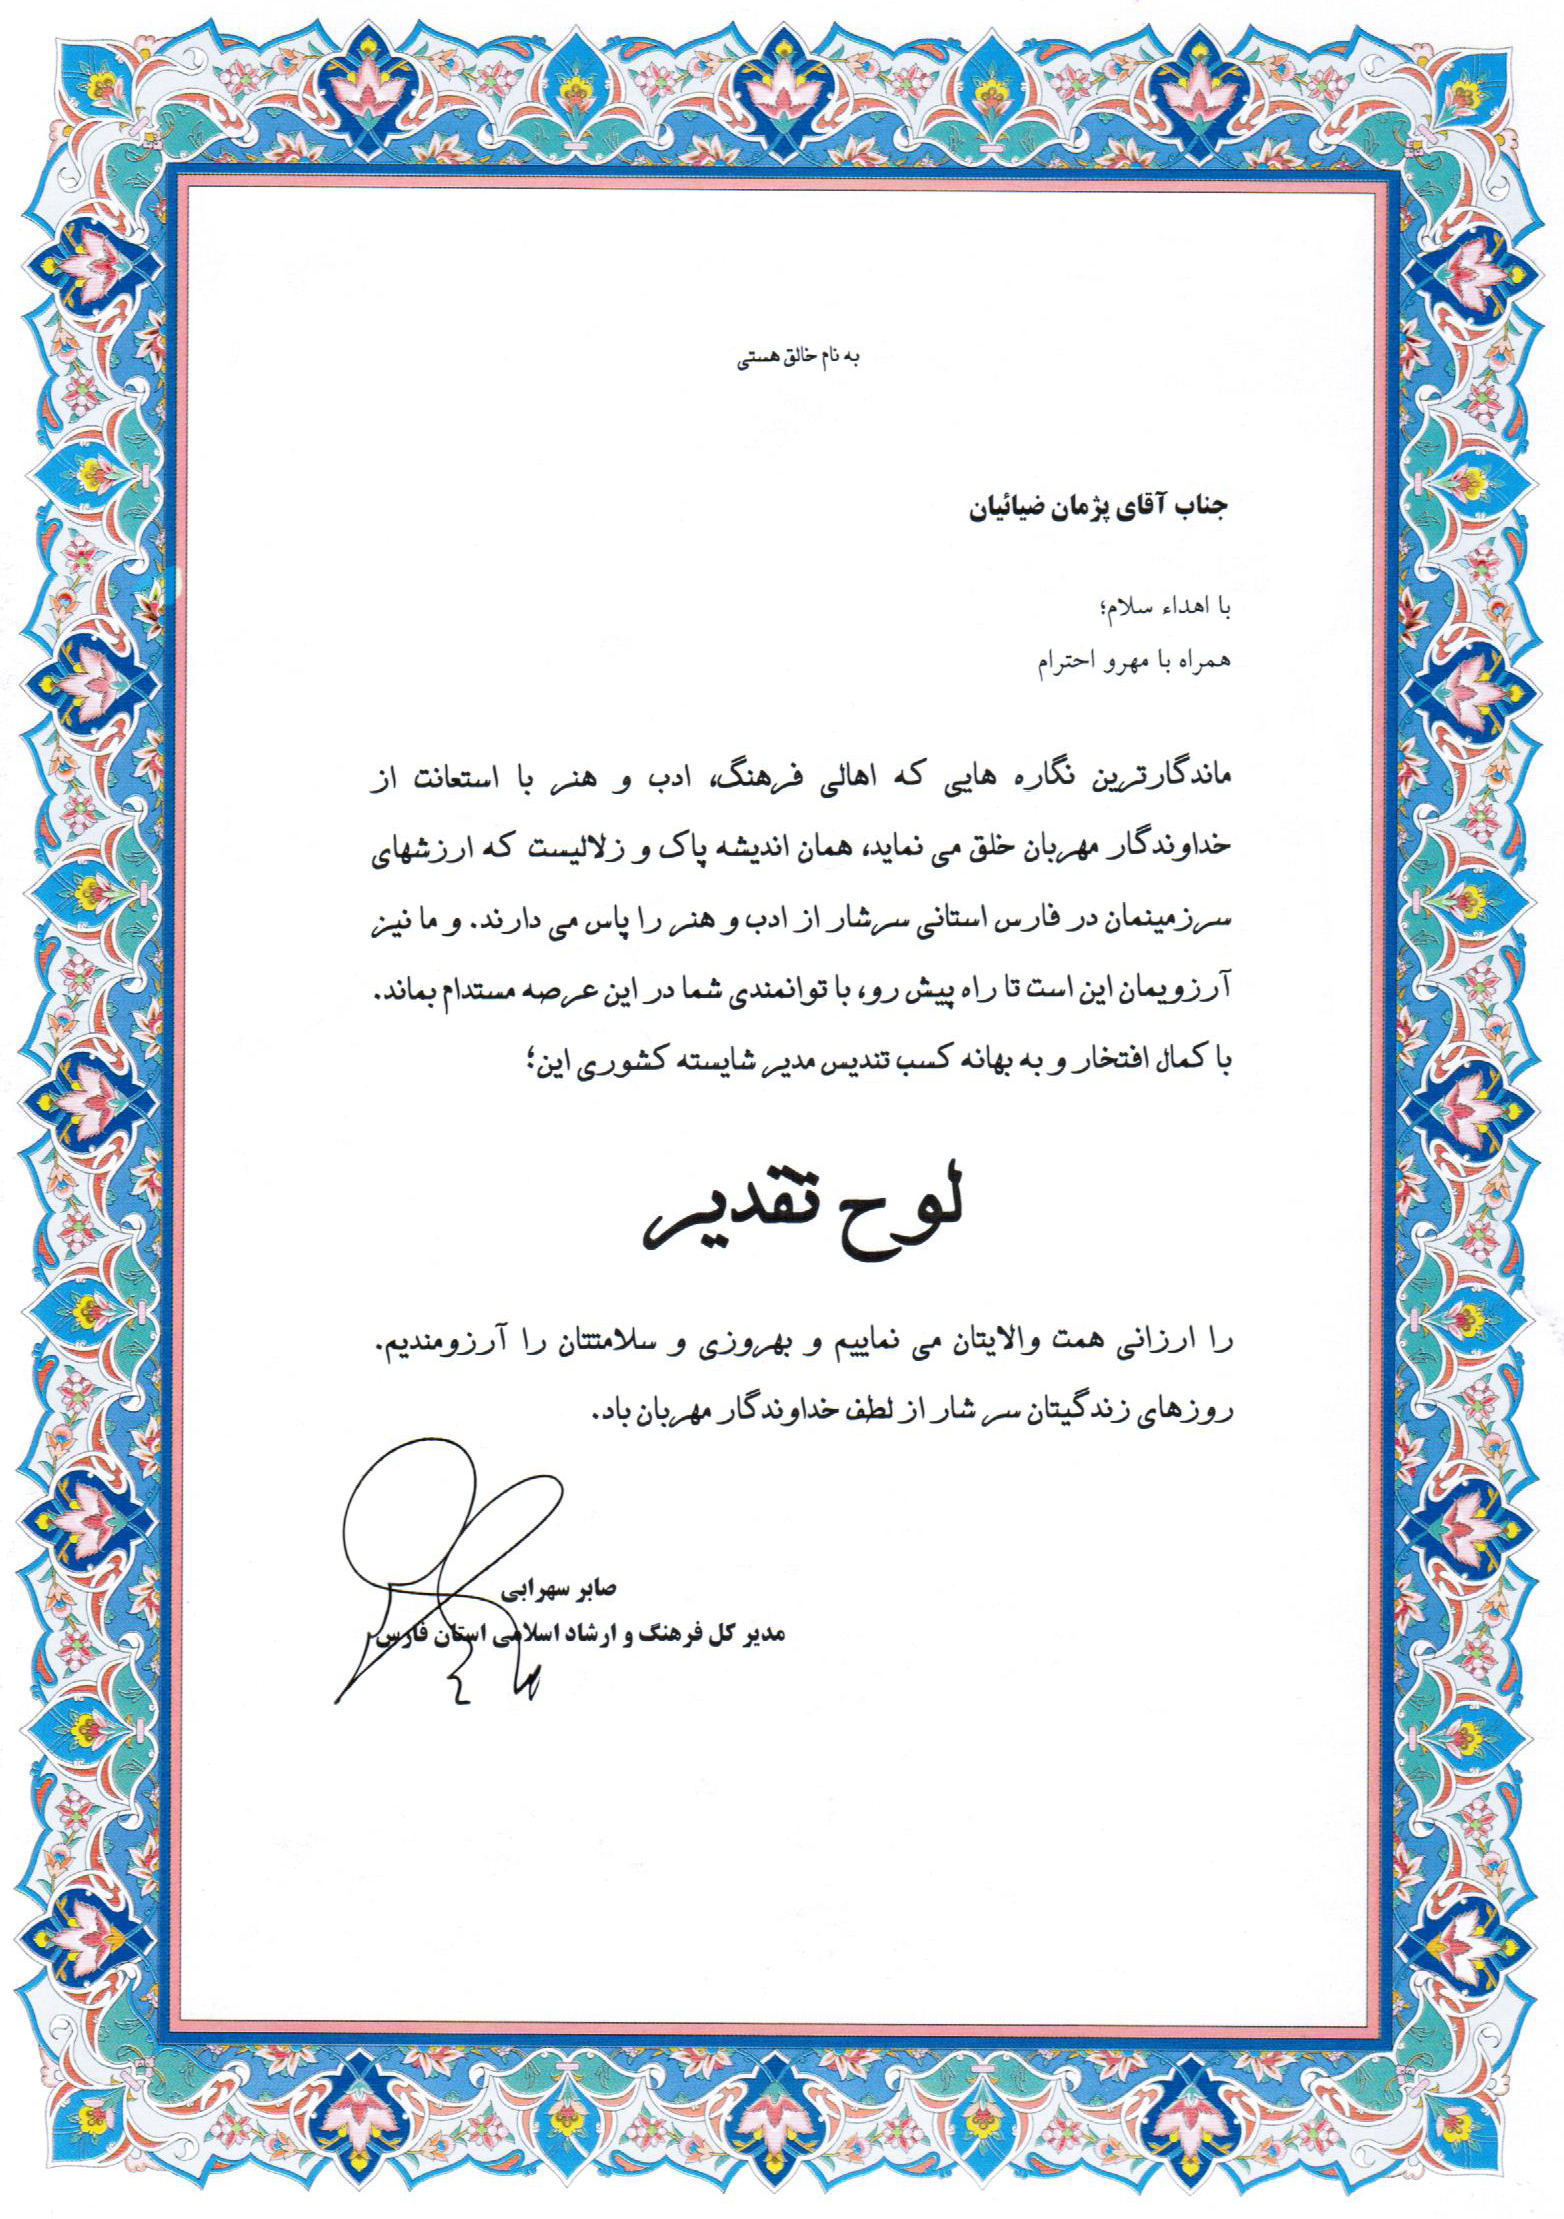 به نام خالق هستی
جناب آقای پژمان ضیائیان
با اهداء سلام؛
همراه با مهرو احترام
ماندگارترین نگاره هایی که اهالی فرهنگ، ادب و هنر با استعانت از
خداوندگار مهربان خلق می نماید، همان اندیشه پاک و زلالیست که ارزشهای
سرزمینمان در فارس استانی سرشار از ادب و هنر را پاس می دارند. و ما نیز
آرزویمان این است تا راه پیش رو، با توانمندی شما در این عرصه مستدام بماند.
با کمال افتخار و به بهانه کسب تندیس مدیر شایسته کشوری این؛
لوح تقدیر
را ارزانی همت والایتان می نماییم و بهروزی و سلامتتان را آرزومندیم.
روزهای زندگیتان سر شار از لطف خداوندگار مهربان باد.
صابر سهرابی
مدیر کل فرهنگ و ارشاد اسلامی استان فارس